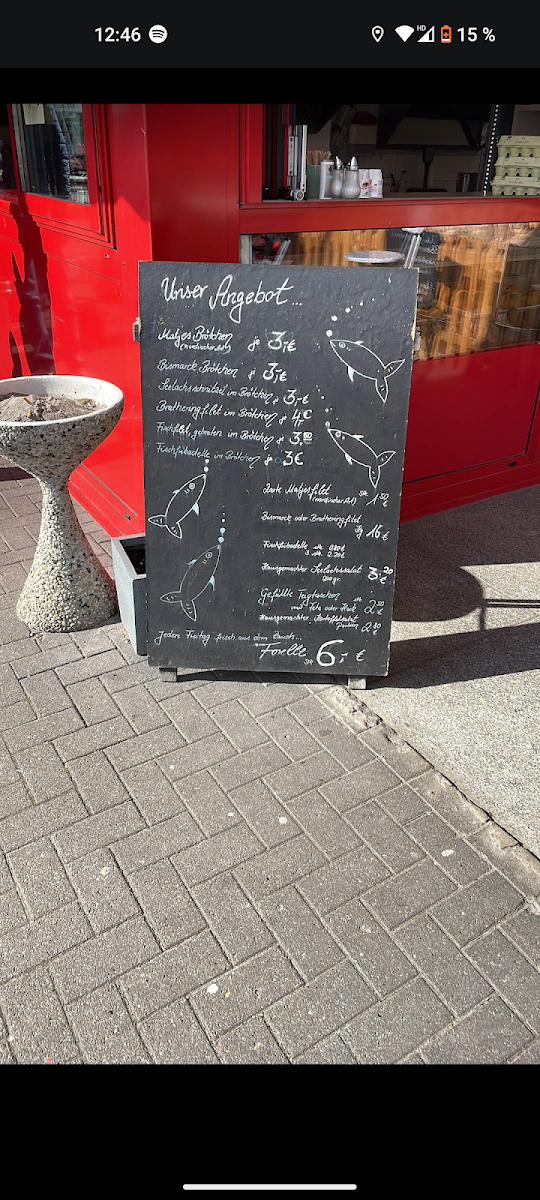 12:46
HD
15 %
Unser Angebot...
Matjes Brötchen
(nordischer Art) je 3,-€
Bismarck Brötchen je 3,-€
Seelachsschnitzel im Brötchen je 3,-€
Bratheringfilet im Brötchen je 4,-€
Fischfilet, gebraten im Brötchen je 3,50 €
Fischfrikadelle im Brötchen je 3€
Zarte Matjesfilet
(nordischer Art) Stk 1,50 €
Bismarck oder Bratheringfilet
kg 16 €
Fischfrikadelle
Hausgemachter Seelachssalat
200gr. 3,20 €
Gefüllte Teigtaschen
mit Feta oder Hack Stk 2,50
Hausgemachter Kartoffelsalat
Portion 2,50 €
Jeden Freitag frisch aus dem Rauch...
Forelle Stk 6,- €